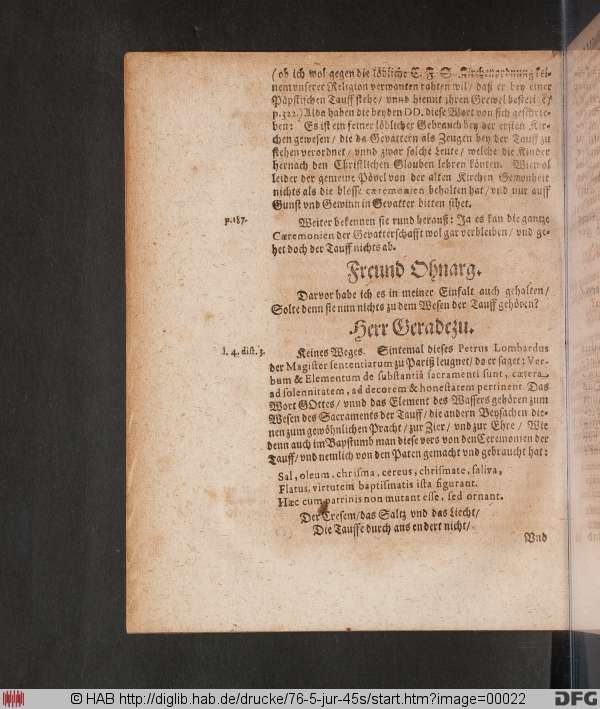 (ob ich wol gegen die löbliche C. F. S. Kirchenordnung kei-
nem vnserer Religion verwanten rahten wil/ daß er bey einer
Päpstischen Tauff stehe/ vnnd hiemit ihren Grewel bestetige/
p.322.) Alda haben die beyden DD. diese Wort von sich geschrie-
ben: Es ist ein feiner löblicher Gebrauch bey der ersten Kir-
chen gewesen/ die da Gevattern als Zeugen bey der Tauff zu
stehen verordnet/ vnnd zwar solche Leute/ welche die Kinder
hernach den Christlichen Glauben lehren könten. Wiewol
leider der gemeine Pövel von der alten Kirchen Gewonheit
nichts als die blosse cæremonien behalten hat/ vnd nur auff
Gunst vnd Gewinn in Gevatter bitten sihet.
p.187. Weiter bekennen sie rund herauß: Ja es kan die gantze
Cæremonien der Gevatterschafft wol gar verbleiben/ vnd ge-
het doch der Tauff nichts ab.
Freund Ohnarg.
Darvor habe ich es in meiner Einfalt auch gehalten/
Solte denn sie nun nichts zu dem Wesen der Tauff gehören?
Herr Geradezu.
l. 4. dist. 3. Keines Weges. Sintemal dieses Petrus Lombardus
der Magister sententiarum zu Pariß leugnet/ do er saget: Ver-
bum & Elementum de substantiâ sacramenti sunt, cætera
ad solennitatem, ad decorem & honestatem pertinent. Das
Wort GOttes/ vnnd das Element des Wassers gehören zum
Wesen des Sacraments der Tauff/ die andern Beysachen die-
nen zum gewöhnlichen Pracht/ zur Zier/ vnd zur Ehre/ Wie
denn auch im Bapstumb man diese vers von den Ceremonien der
Tauff/ vnd nemlich von den Paten gemacht vnd gebraucht hat:
Sal, oleum, chrisma, cereus, chrismate, saliva,
Flatus, virtutem baptismatis ista figurant.
Hæc cum patrinis non mutant esse, sed ornant.
Der Cresem/ das Saltz vnd das Liecht/
Die Tauffe durch aus endert nicht/
Vnd
© HAB http://diglib.hab.de/drucke/76-5-jur-45s/start.htm?image=00022
DFG